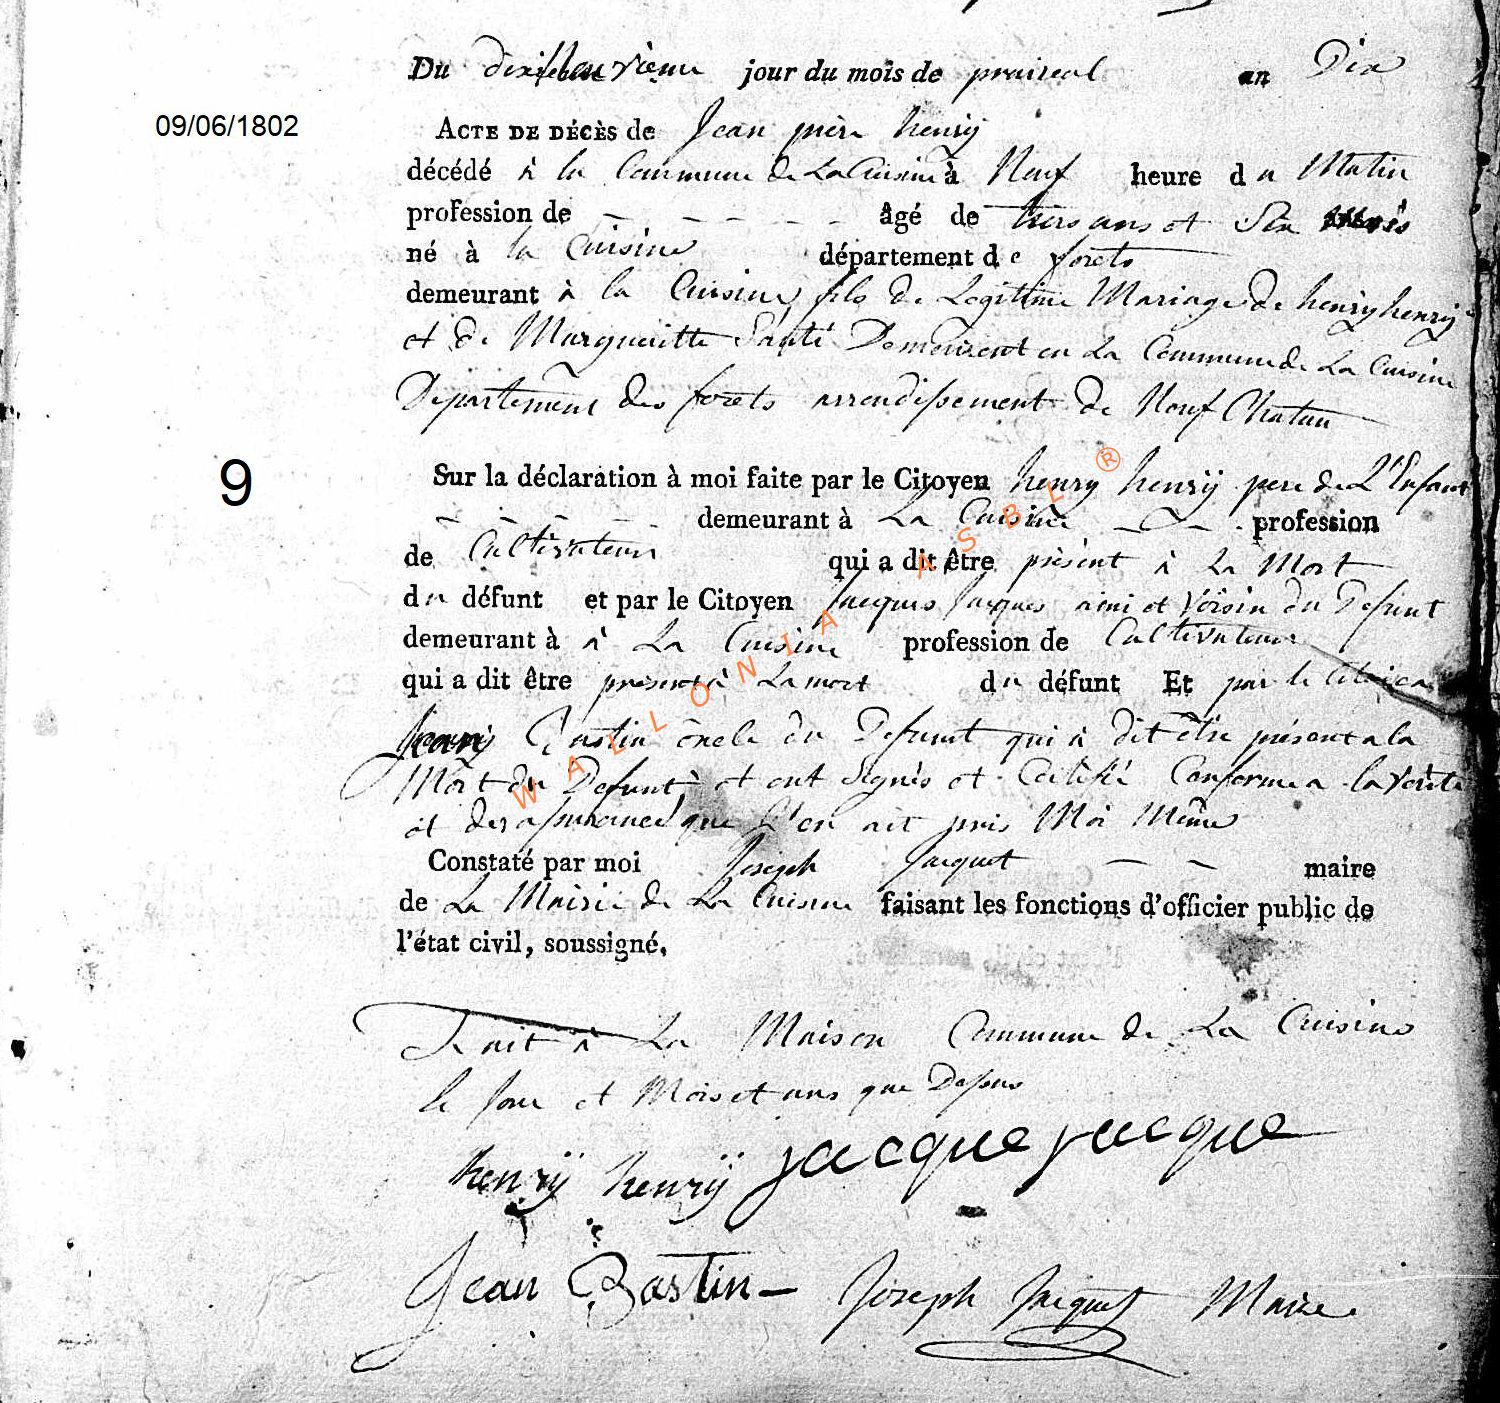 Du jour du mois de praireal an Dix
09/06/1802
ACTE DE DÉCÈS de Jean piere henrÿ
décédé à la Commune de La Cuisine à Neuf heure du Matin
profession de - - - - - âgé de trois ans et Six Mois
né à la Cuisine département de forets
demeurant à la Cuisine fils de Legitime Mariage de henry henry
et de Margueritte Demeurent en La Commune de La Cuisine
Departement des forets arrondissement de Neuf Chateau
9
Sur la déclaration à moi faite par le Citoyen henry henrÿ pere de L'Enfant
- - - - - demeurant à La Cuisine - - - profession
de Cultivateur qui a dit être présent à La Mort
du défunt et par le Citoyen Jacques Jacques ami et Voisin du Defunt
demeurant à à La Cuisine profession de Cultivateur
qui a dit être présent à La mort du défunt Et par le
Jean Bastin oncle du Defunt qui à dit être présent a la
Mort du Defunt et ont Signés et Conforme a la Verité
et que J'en ait pris Moi Même
Constaté par moi Joseph Jacquet - - maire
de La Mairie de La Cuisine faisant les fonctions d'officier public de
l'état civil, soussigné.
Fait à La Maison Commune de La Cuisine
le Jour et Mois et ans que Dessus
henrÿ henrÿ jacque jacque
Jean Bastin - Joseph Jacquet Maire
WALLONIA ASBL ®